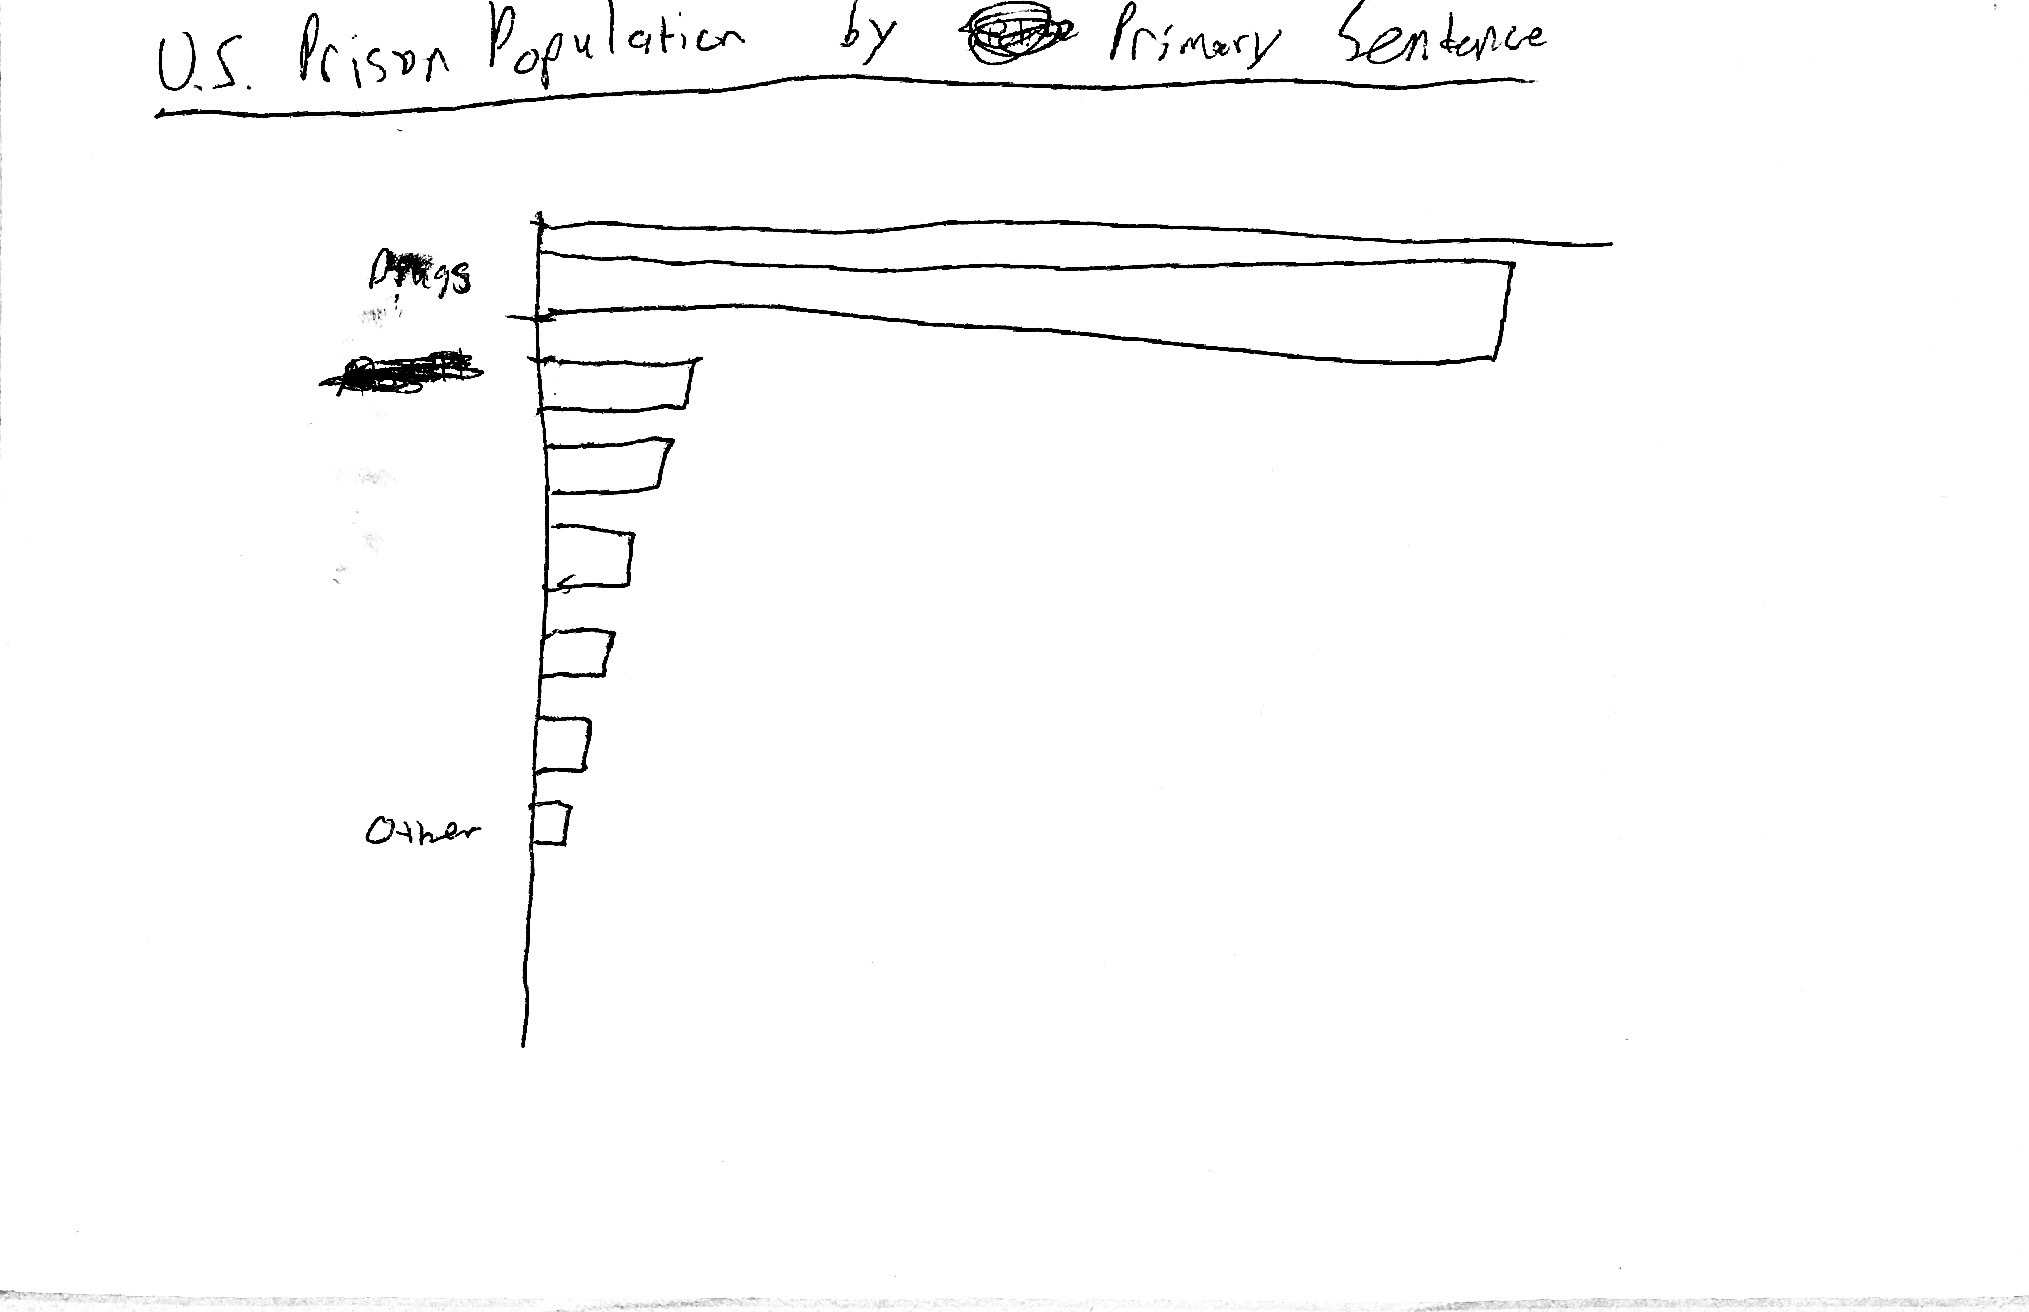 U.S. Prison Population by Primary Sentence
Drugs
Other